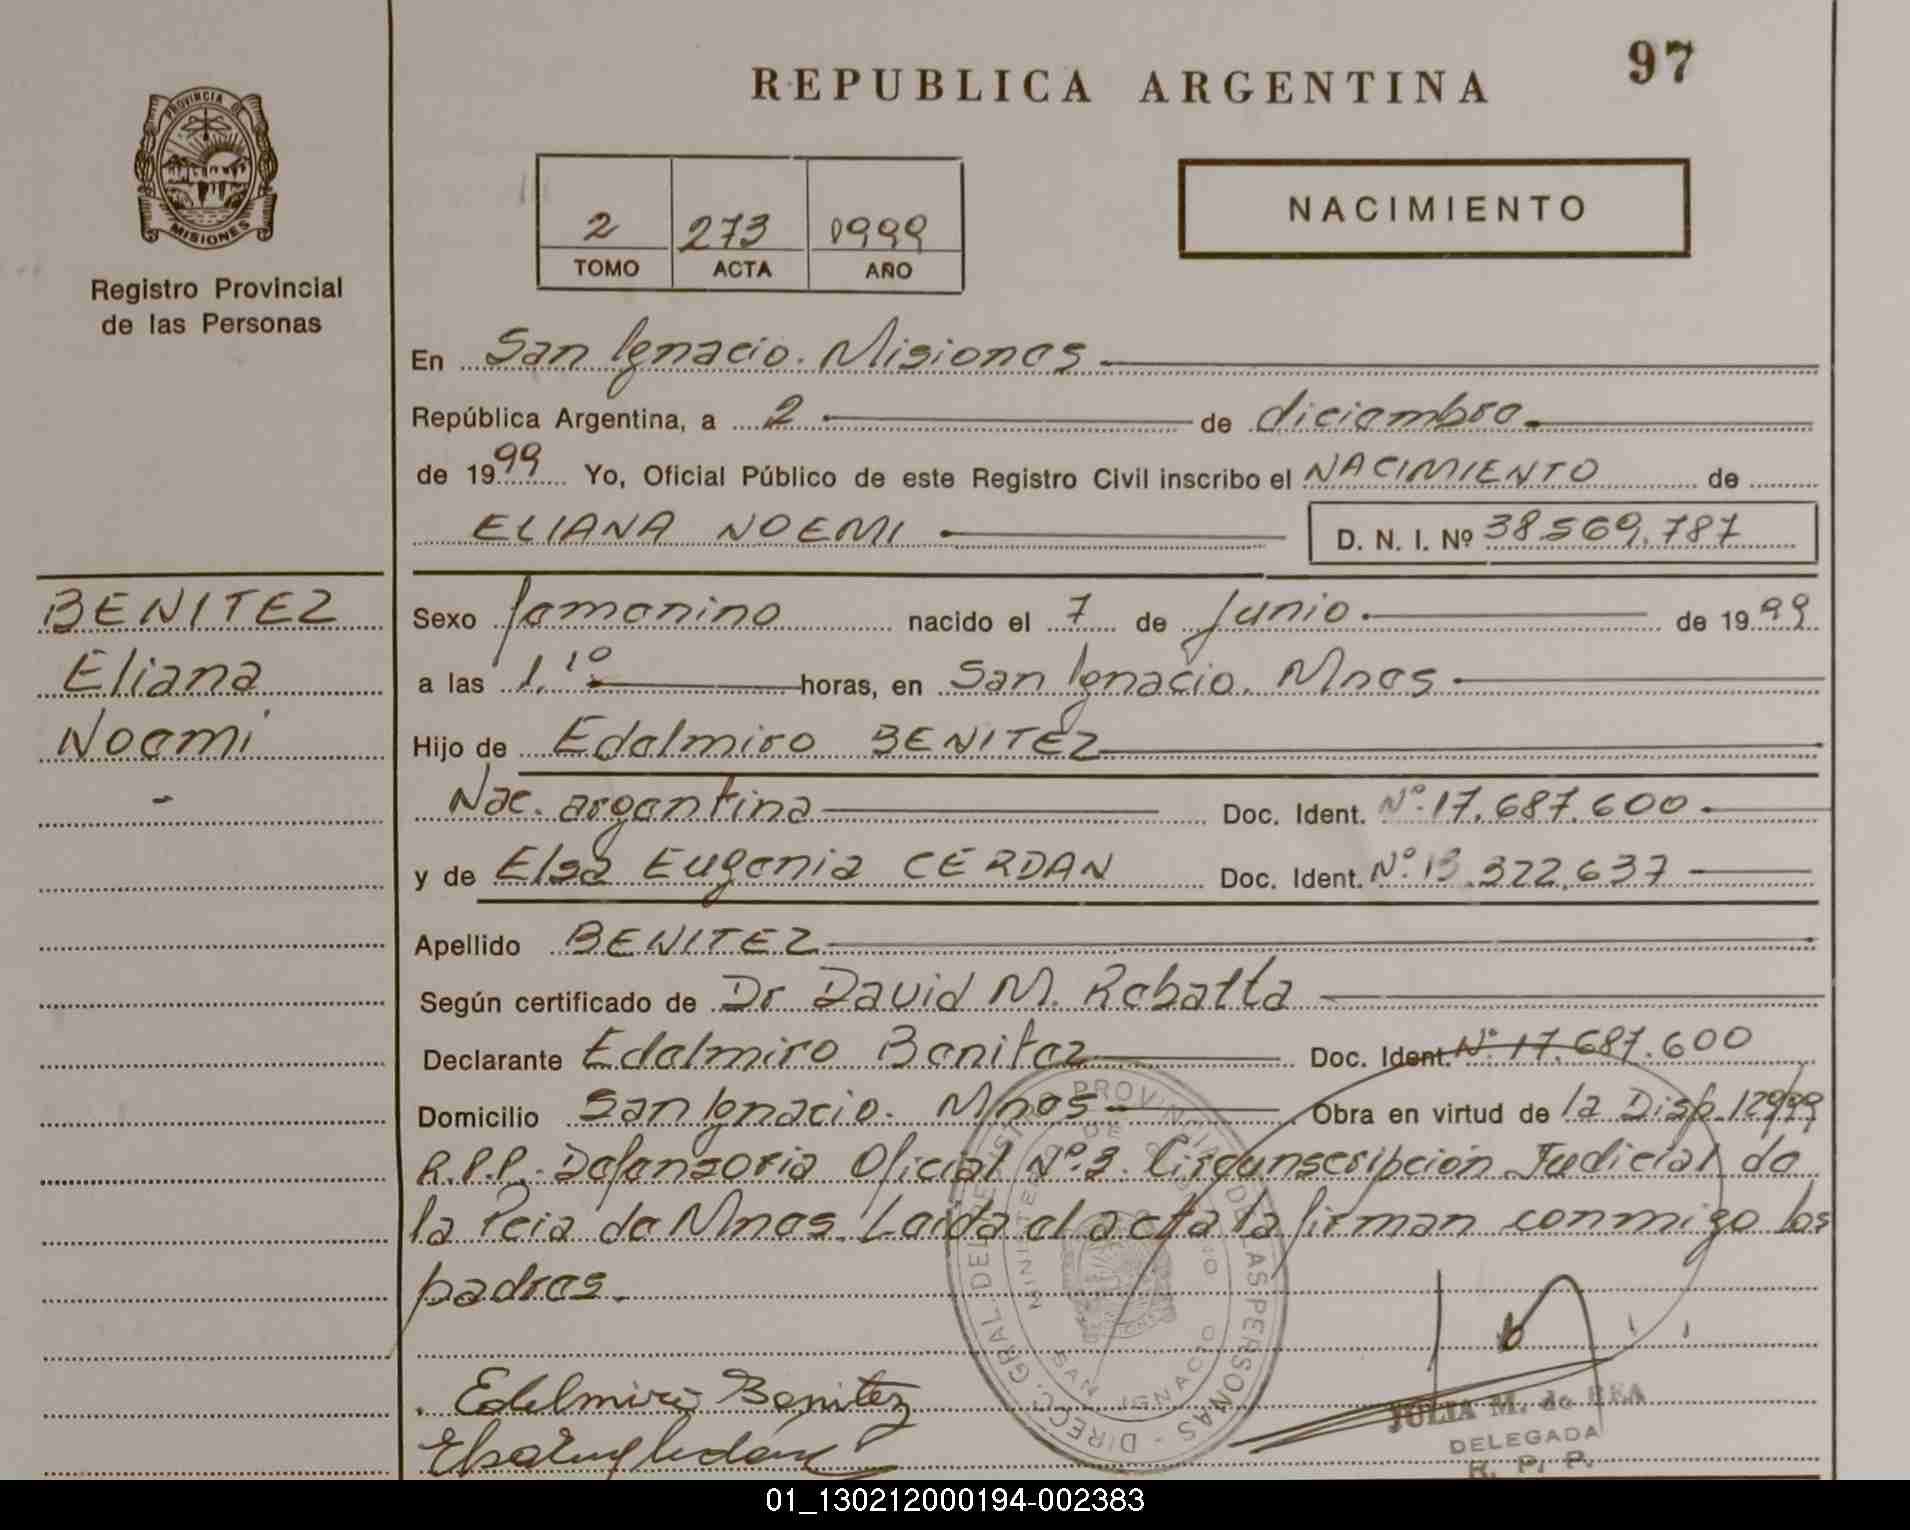 97
REPUBLICA ARGENTINA
PROVINCIA DE
MISIONES
Registro Provincial
de las Personas
2 273 1999
TOMO ACTA AÑO
NACIMIENTO
En San Ignacio. Misiones
República Argentina, a 2 de diciembre
de 1999 Yo, Oficial Público de este Registro Civil inscribo el NACIMIENTO de
ELIANA NOEMI D. N. I. Nº 38.569.787
BENITEZ
Eliana
Noemi
-
Sexo femenino nacido el 7 de Junio de 1999
a las 1,10 horas, en San Ignacio. Mnes
Hijo de Edelmiro BENITEZ
Nac. argentina Doc. Ident. Nº 17.687.600
y de Elsa Eugenia CERDAN Doc. Ident. Nº 13.322.637
Apellido BENITEZ
Según certificado de Dr David M. Rebatta
Declarante Edelmiro Benitez Doc. Ident. Nº 17.687.600
Domicilio San Ignacio. Mnes Obra en virtud de la Disp.
R.P.P. Defensoria Oficial Nº 2. Circunscripción Judicial de
la Pcia de Mnes. Leida el acta la firman conmigo los
padres.
Edelmiro Benitez
PROVINCIA DE LAS PERSONAS - DIRECC. GRAL. DEL
MINISTERIO DE GOBIERNO
SAN IGNACIO
JULIA M. de REA
DELEGADA
R. P. P.
01_130212000194-002383